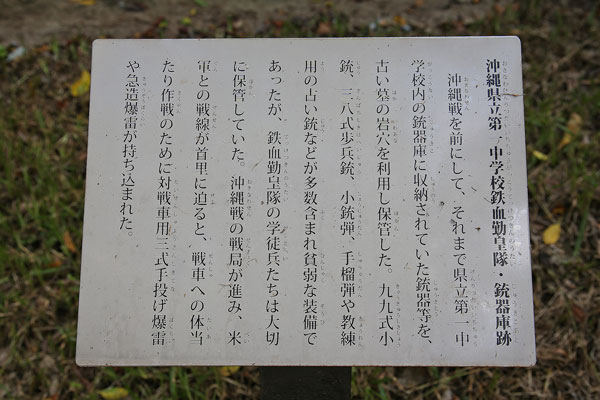 沖縄県立第一中学校鉄血勤皇隊・銃器庫跡
沖縄戦を前にして、それまで県立第一中
学校内の銃器庫に収納されていた銃器等を、
古い墓の岩穴を利用し保管した。九九式小
銃、三八式歩兵銃、小銃弾、手榴弾や教練
用の古い銃などが多数含まれ貧弱な装備で
あったが、鉄血勤皇隊の学徒兵たちは大切
に保管していた。沖縄戦の戦局が進み、米
軍との戦線が首里に迫ると、戦車への体当
たり作戦のために対戦車用三式手投げ爆雷
や急造爆雷が持ち込まれた。